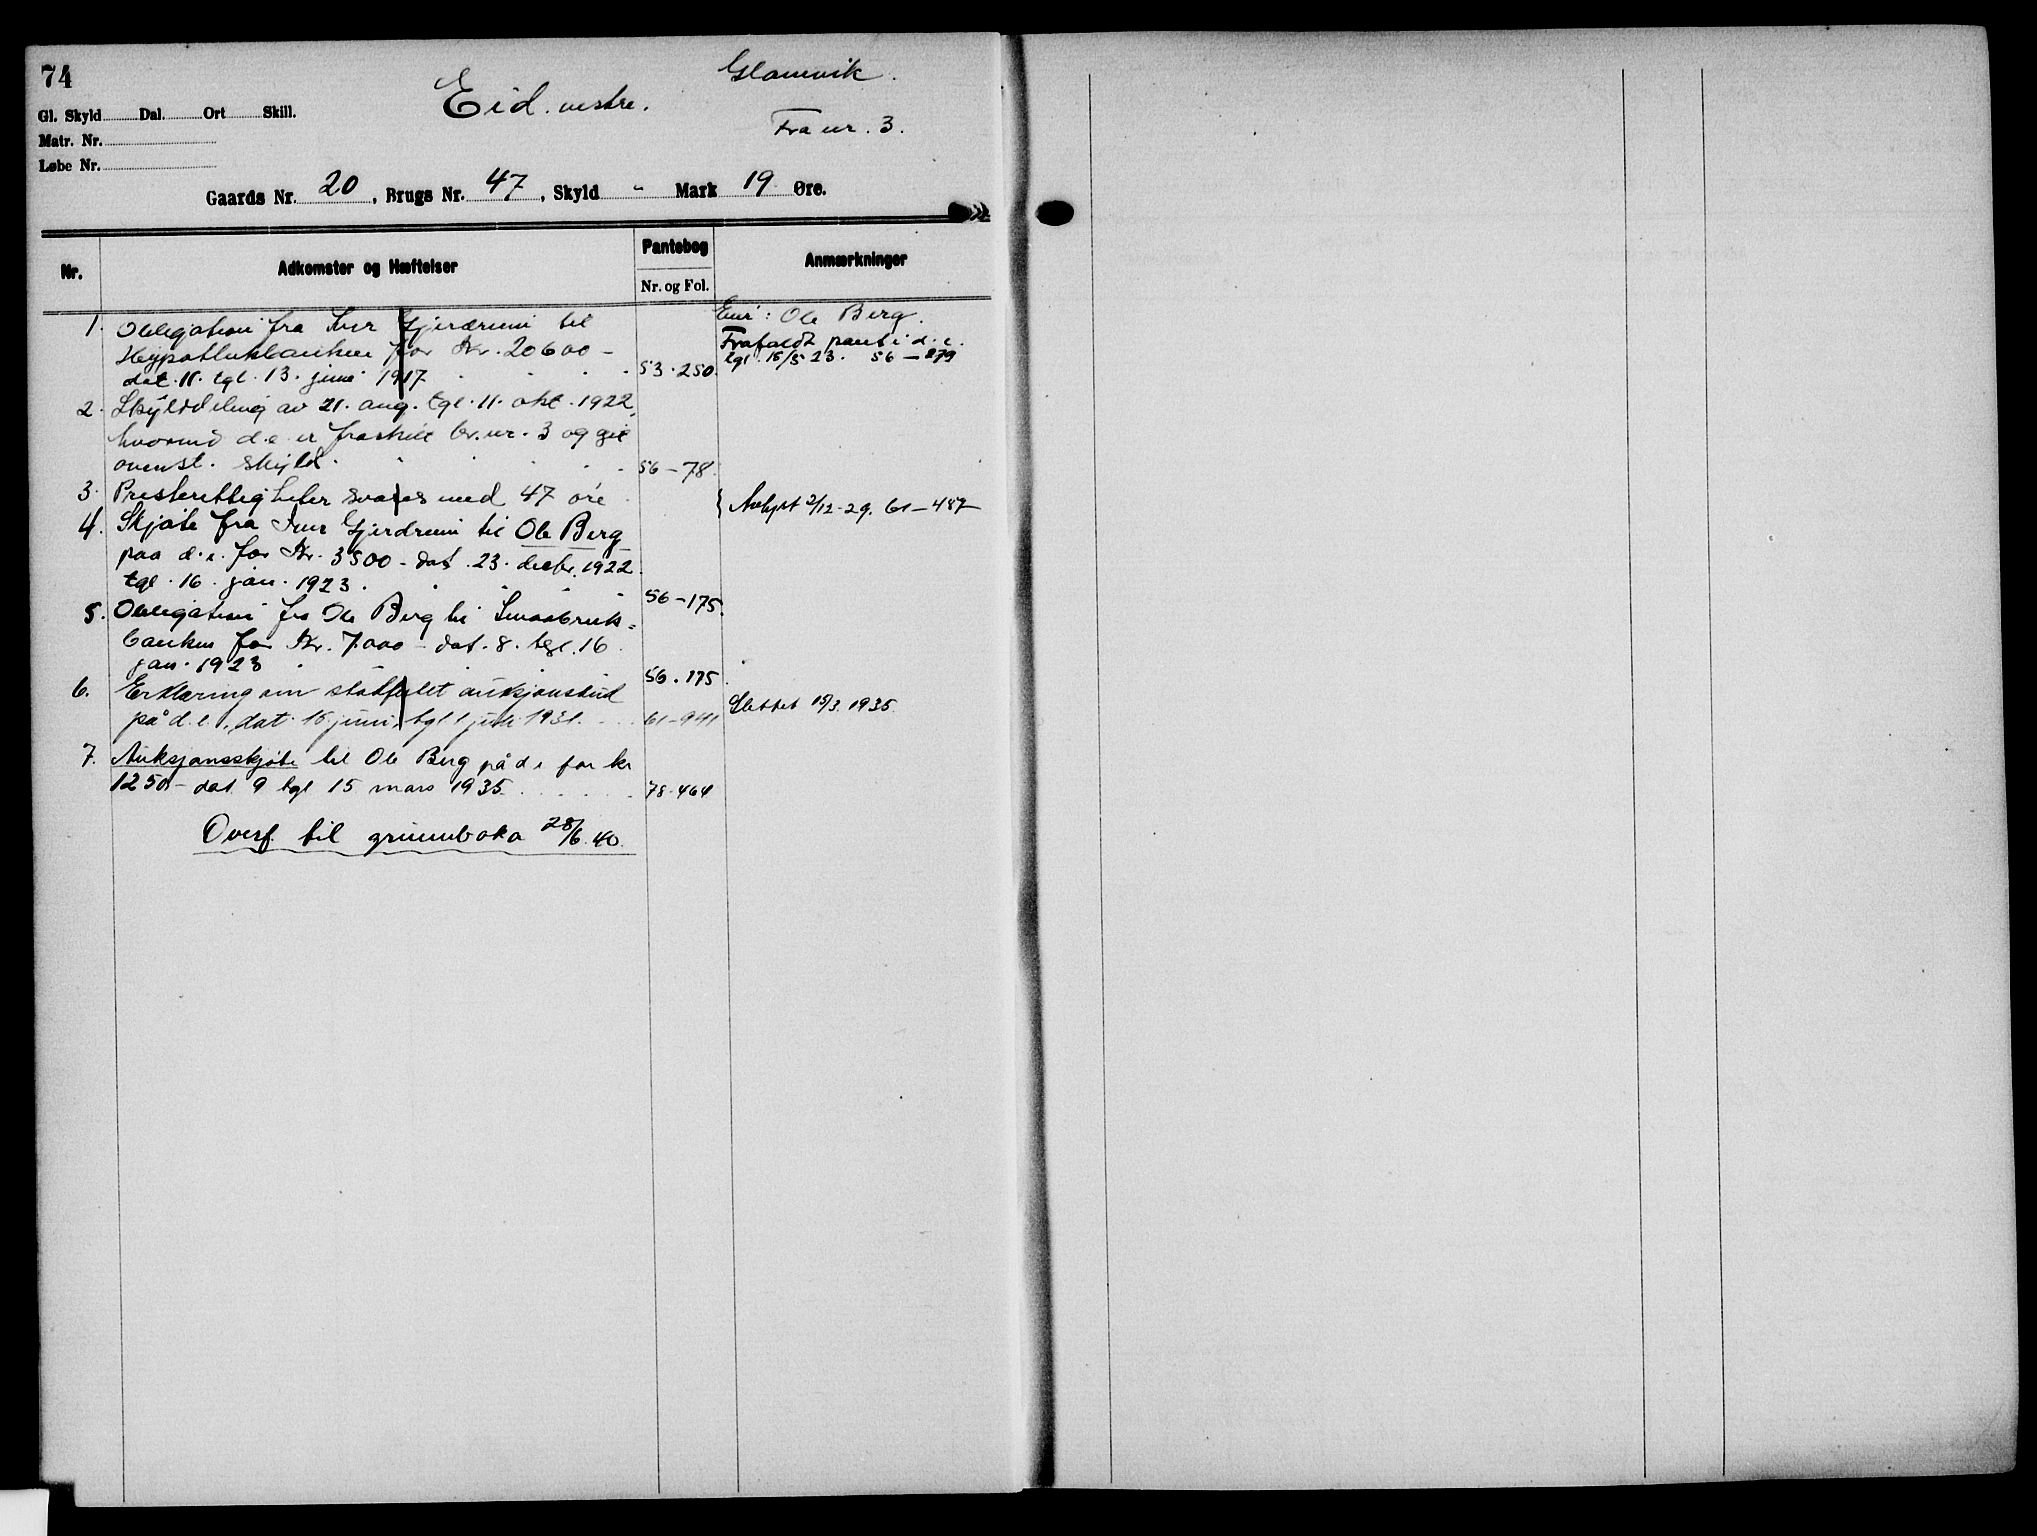 74
Glamvik.
Eid. vestre.
Gl. Skyld Dal. Ort Skill.
Fra nr. 3.
Matr. Nr.
Løbe Nr.
Gaards Nr. 20, Brugs Nr. 47, Skyld - Mark 19 Øre.
Nr. Adkomster og Hæftelser Pantebog Nr. og Fol. Anmærkninger
Eier: Ole Berg.
1. Obligation fra Iver Gjerdrum til
Hypothekbanken for Kr. 20600 -
dat. 11. tgl. 13. juni 1917 53.250.
Frafaldt pant i d. e.
tgl. 15/5 23. 56-279
2. Skylddeling av 21. aug. tgl. 11. okt. 1922,
hvorved d.e. er fraskilt br. nr. 3 og git
ovenst. skyld. 56-78.
3. Presterettigheter svares med 47 øre.
Avlyst 2/12-29. 61-487
4. Skjøte fra Iver Gjerdrum til Ole Berg
paa d. e. for Kr. 3500 - dat. 23. decbr. 1922
tgl. 16. jan. 1923. 56-175.
5. Obligation fra Ole Berg til Smaabruk-
banken for Kr. 7.000 - dat. 8. tgl. 16.
jan. 1923 56.175
6. Erklæring om stadfestet auksjonsbud
på d. e., dat. 15 juni, tgl 1 juli 1931. 61-941
Slettet 15/3. 1935
7. Auksjonsskjøte til Ole Berg på d e for kr
1250 - dat 9 tgl 15 mars 1935 78.464
Overf. til grunnboka 28/6.40.